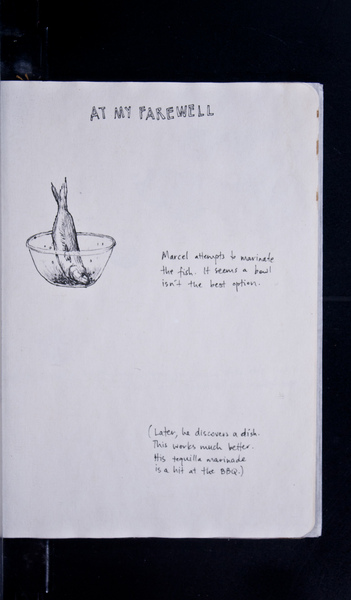 AT MY FAREWELL
Marcel attempts to marinate
the fish. It seems a bowl
isn't the best option.
(Later, he discovers a dish.
This works much better.
His tequilla marinade
is a hit at the BBQ.)